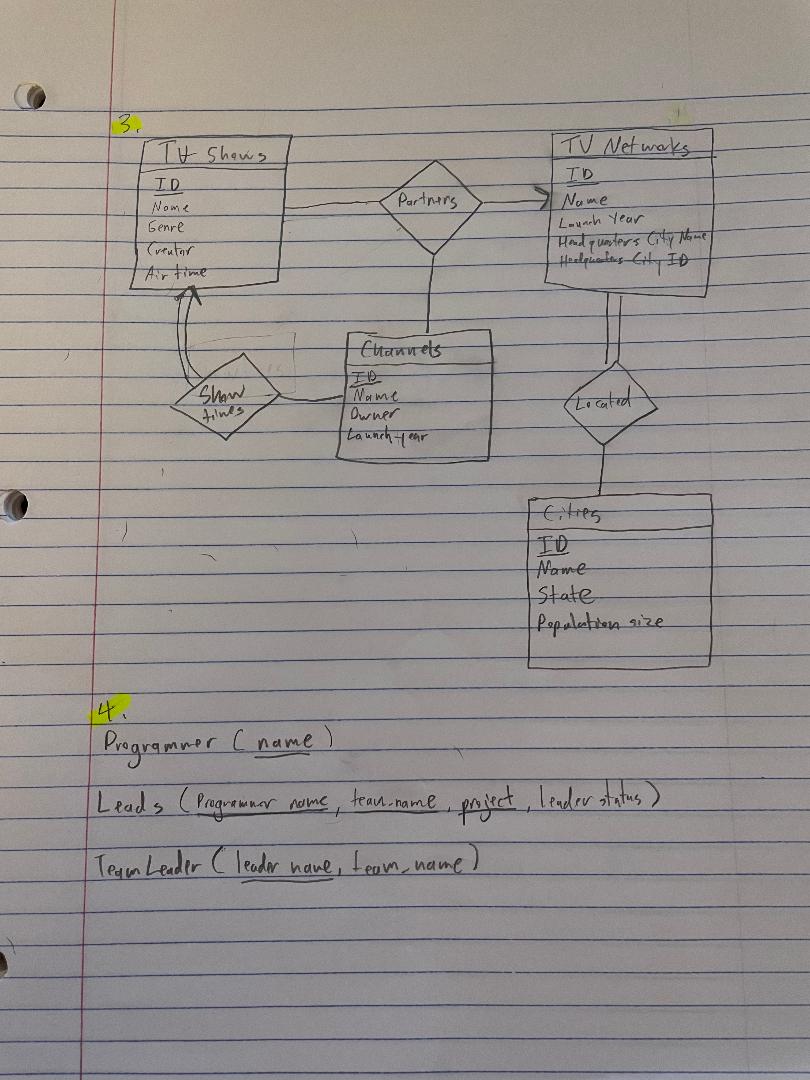 3.
TV Shows
ID
Name
Genre
Creator
Air time
Partners
TV Networks
ID
Name
Launch Year
Headquarters City Name
Headquarters City ID
Show
times
Channels
ID
Name
Owner
Launch-year
Located
Cities
ID
Name
State
Population size
4.
Programmer (name)
Leads (Programmer name, team_name, project, leader status)
Team Leader (leader name, team_name)